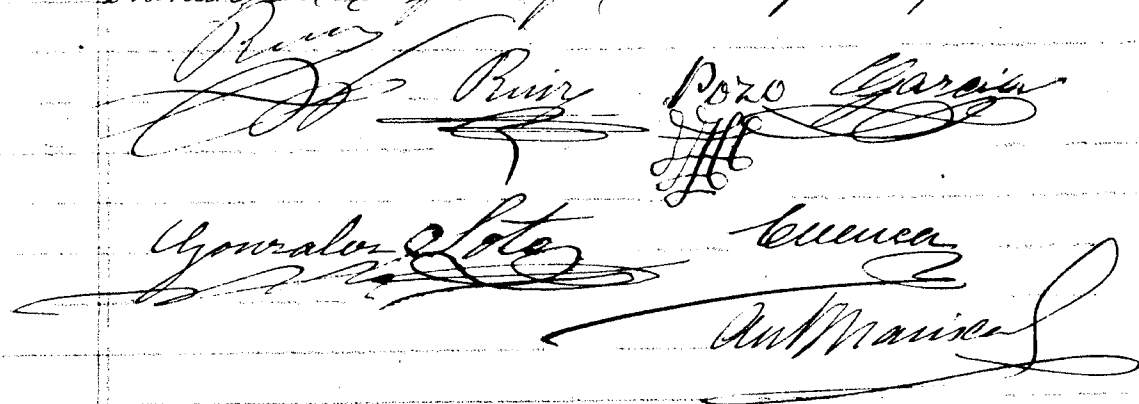 Ruiz
Ruiz Pozo Garcia
Gonzalez Soto Cuenca
Ant Mariscal